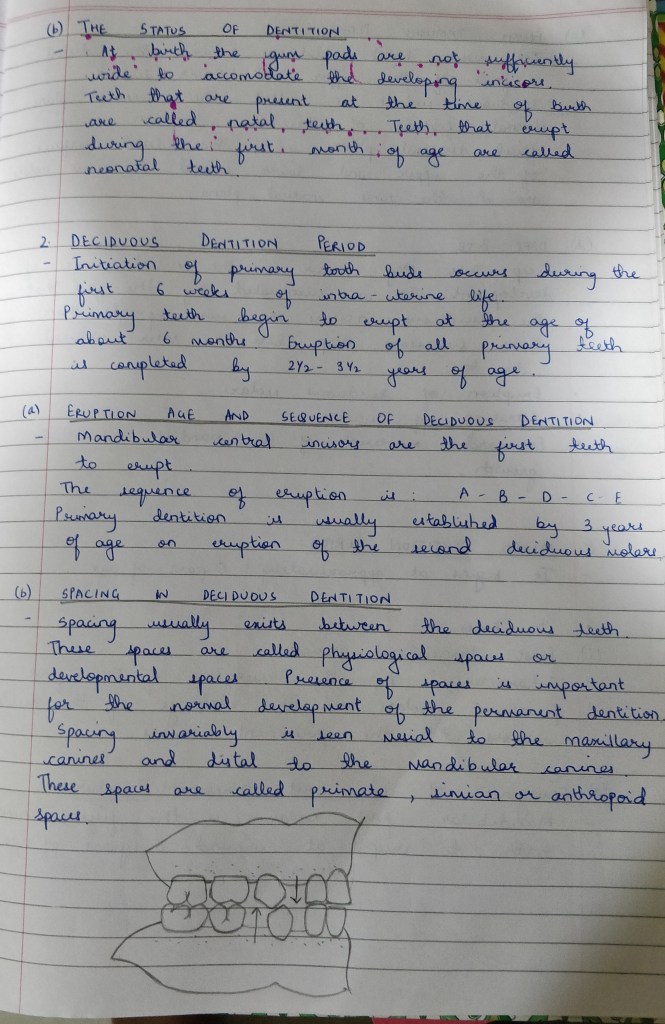 (b) THE STATUS OF DENTITION
- At birth the gum pads are not sufficiently
wide to accomodate the developing incisors.
Teeth that are present at the time of birth
are called natal teeth. Teeth that erupt
during the first month of age are called
neonatal teeth.
2. DECIDUOUS DENTITION PERIOD
- Initiation of primary tooth buds occurs during the
first 6 weeks of intra-uterine life.
Primary teeth begin to erupt at the age of
about 6 months. Eruption of all primary teeth
is completed by 2 1/2 - 3 1/2 years of age.
(a) ERUPTION AGE AND SEQUENCE OF DECIDUOUS DENTITION
- Mandibular central incisors are the first teeth
to erupt.
The sequence of eruption is : A - B - D - C - E
Primary dentition is usually established by 3 years
of age on eruption of the second deciduous molars.
(b) SPACING IN DECIDUOUS DENTITION
- Spacing usually exists between the deciduous teeth.
These spaces are called physiological spaces or
developmental spaces. Presence of spaces is important
for the normal development of the permanent dentition.
Spacing invariably is seen mesial to the maxillary
canines and distal to the mandibular canines.
These spaces are called primate, simian or anthropoid
spaces.